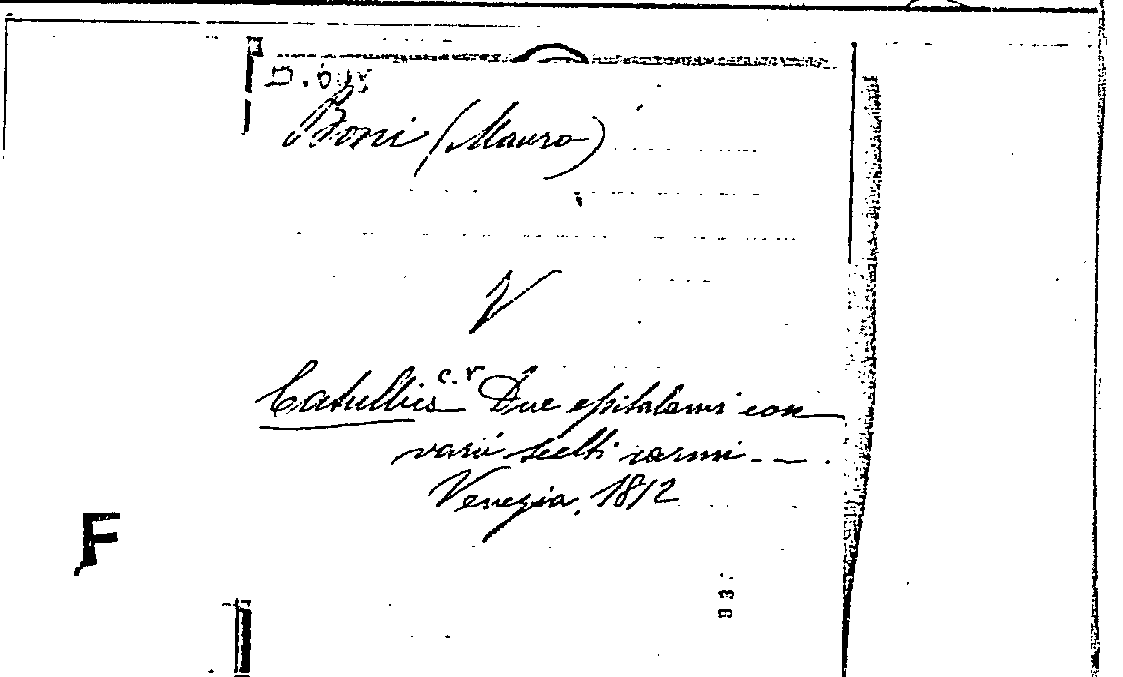 Boni (Mauro)
V
Catullus c.v Due epitalami con
varii scelti carmi - - .
Venezia, 1812
F